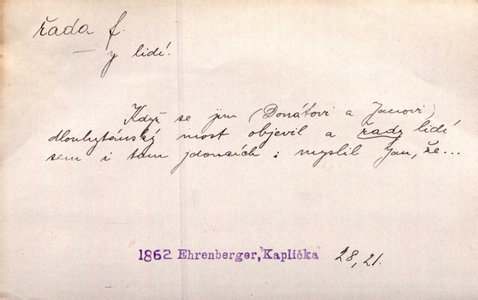 řada f.
— y lidí.
Když se jim (Donátovi a Janovi)
dlouhytánský most objevil a řady lidí
sem i tam jdoucích: myslil Jan, že...
1862 Ehrenberger, Kaplička 28, 21.